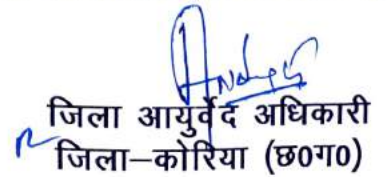 जिला आयुर्वेद अधिकारी
जिला–कोरिया (छ0ग0)